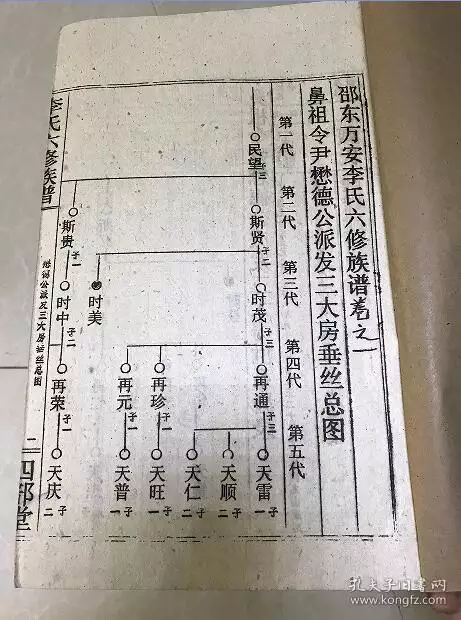 邵东万安李氏六修族谱卷之一
鼻祖令尹懋德公派发三大房垂丝总图
第一代
第二代
第三代
第四代
第五代
民望 子三
斯贤 子二
斯贵 子一
时茂 子三
时美
时中 子二
再通 子三
再珍 子一
再元 子一
再荣 子一
天雷 子一
天顺 子二
天仁 子二
天旺 子一
天普 子一
天庆 子二
李氏六修族谱
懋德公派发三大房垂丝总图
二
孔夫子旧书网
kongfz.com